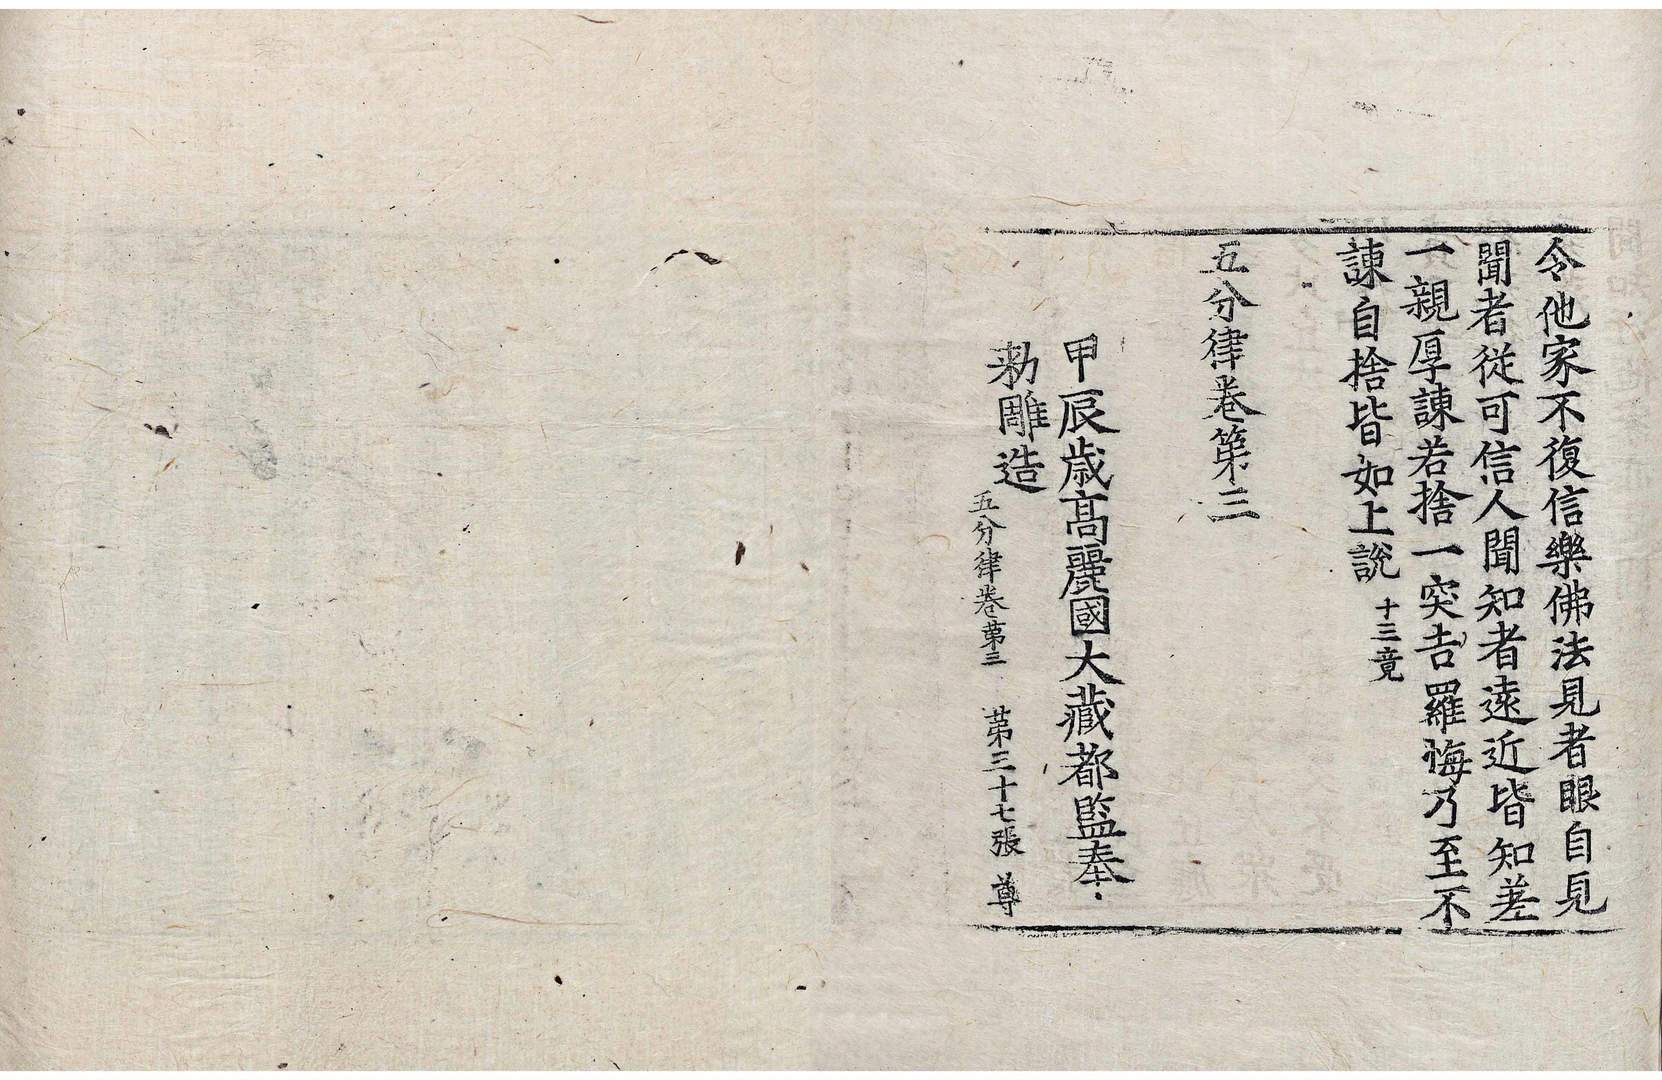 令他家不復信樂佛法見者眼自見
聞者從可信人聞知者遠近皆知差
一親厚諫若捨一突吉羅悔乃至不
諫自捨皆如上說十三竟
五分律卷第三
甲辰歲高麗國大藏都監奉
勑雕造
五分律卷第三 第三十七張 尊